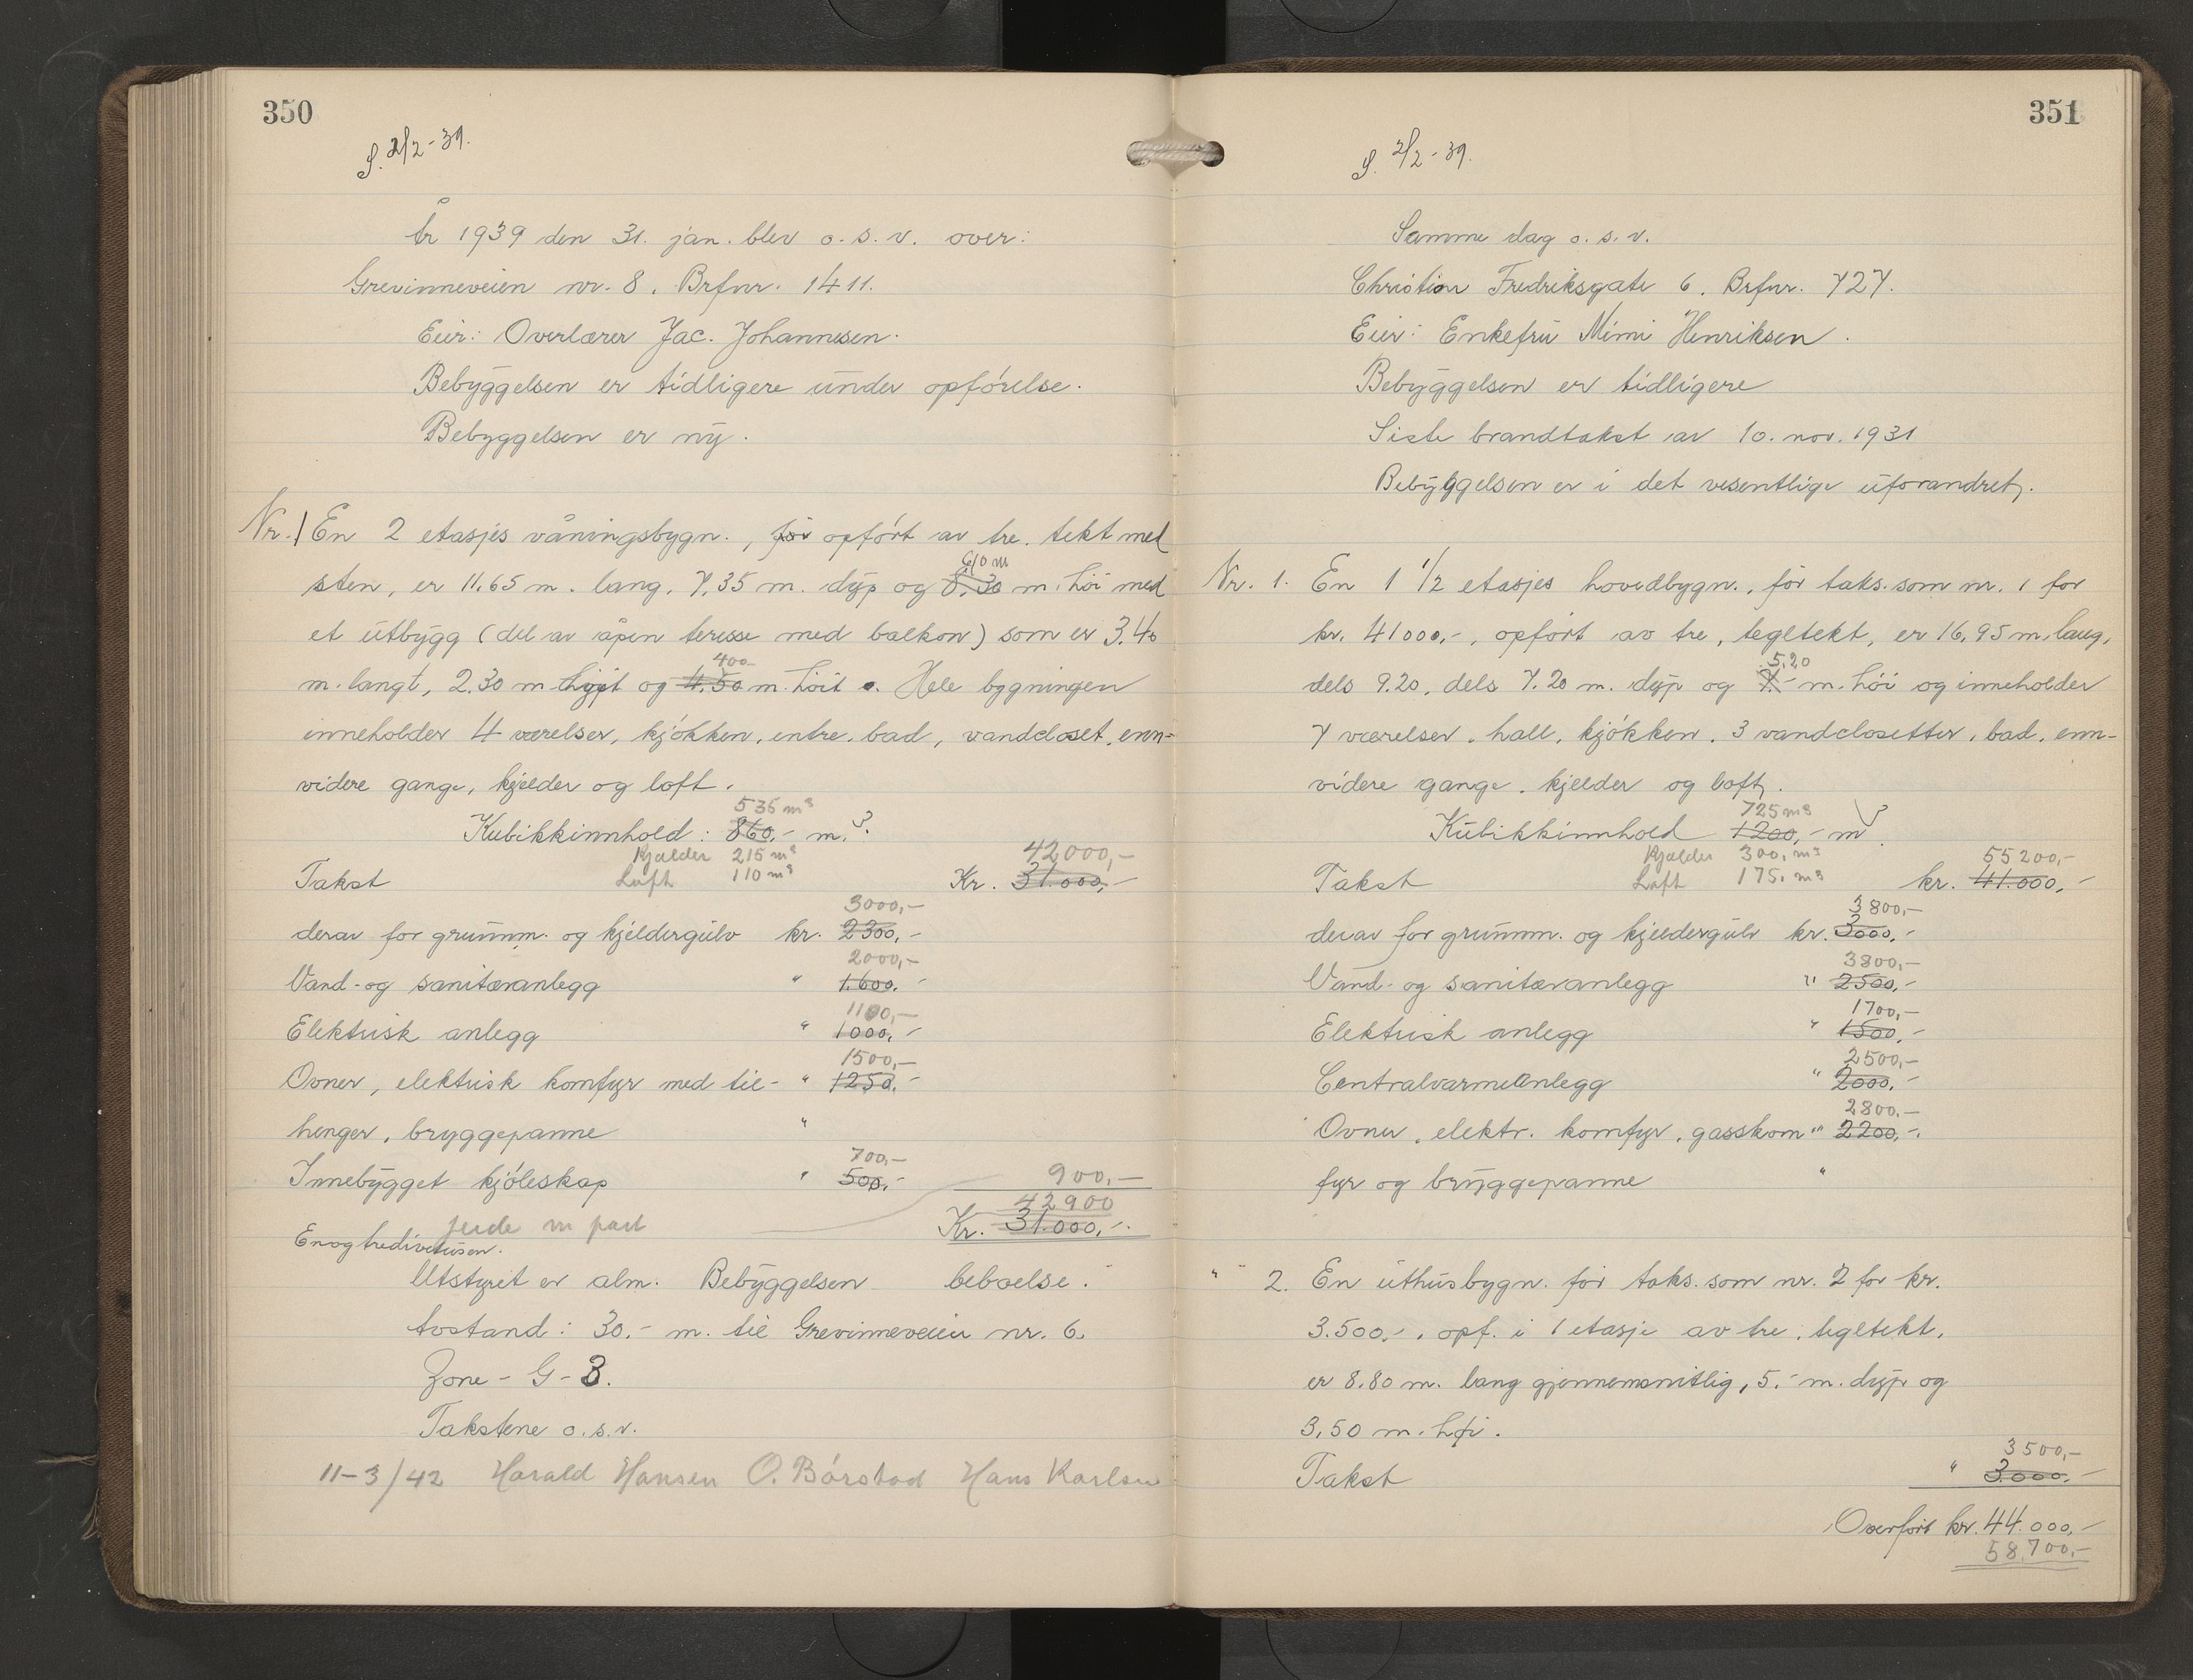 350
S. 2/2-39.
År 1939 den 31. jan. blev o.s.v. over:
Grevinneveien nr. 8. Brfnr. 1411.
Eier: Overlærer Jac. Johannesen.
Bebyggelsen er tidligere under opførelse.
Bebyggelsen er ny.
Nr. 1 En 2 etasjes våningsbygn., før opført av tre. tekt med
6,10 m
sten, er 11.65 m. lang, 7,35 m. dyp og 8,30 m. høi med
et utbygg (del av åpen teresse med balkon) som er 3.40
400
m. langt, 2.30 m. og 4.50 m. høit. Hele bygningen
inneholder 4 værelser, kjøkken, entre, bad, vandcloset, enn-
videre gange, kjelder og loft.
535 m³
Kubikkinnhold: 860,- m.³
Kjælder 215 m³
42000,-
Loft 110 m³
Takst Kr. 31.000,-
3000,-
derav for grunnm. og kjeldergulv kr. 2300,-
2000,-
Vand- og sanitæranlegg " 1.600,-
1100,-
Elektrisk anlegg " 1000,-
1500,-
Ovner, elektrisk komfyr med til- " 1250,-
henger, bryggepanne "
700,-
Innebygget kjøleskap " 500,-
900,-
42900
Kr. 31.000,-.
Enogtredivetusen.
Utstyret er alm. Bebyggelsen beboelse.
Avstand: 30.- m. til Grevinneveien nr. 6.
Zone - G - 3.
Takstene o.s.v.
11-3/42 Harald Hansen O. Børstad Hans Karlsen
351
S. 2/2-39.
Samme dag o.s.v.
Christian Fredriksgate 6. Brfnr. 727.
Eier: Enkefru Mimi Henriksen.
Bebyggelsen er tidligere
Siste brandtakst av 10. nov. 1931
Bebyggelsen er i det vesentlige uforandret.
Nr. 1. En 1 1/2 etasjes hovedbygn., før taks. som nr. 1 for
kr. 41000,-, opført av tre, tegltekt, er 16,95 m. lang,
5,20
dels 9.20, dels 7.20 m. dyp og 7.- m. høi og inneholder
7 værelser, hall, kjøkken, 3 vandclosetter, bad, enn-
videre gange, kjelder og loft.
725 m³
Kubikkinnhold 1200,- m³.
Kjælder 300, m³
55200,-
Loft 175, m³
Takst kr. 41.000,-
3800,-
derav for grunnm. og kjeldergulv kr. 3000,-
3800,-
Vand- og sanitæranlegg " 2500,-
1700,-
Elektrisk anlegg " 1500,-
2500,-
Centralvarmeanlegg " 2000,-
2800,-
Ovner, elektr. komfyr, gasskom " 2200,-.
fyr og bryggepanne "
" 2. En uthusbygn. før taks. som nr. 2 for kr.
3.500,-, opf. i 1 etasje av tre, tegltekt,
er 8.80 m. lang gjennemsnitlig, 5.- m. dyp og
3,50 m. høi.
3500,-
Takst " 3.000,-
Overført kr. 44.000,-
58.700,-